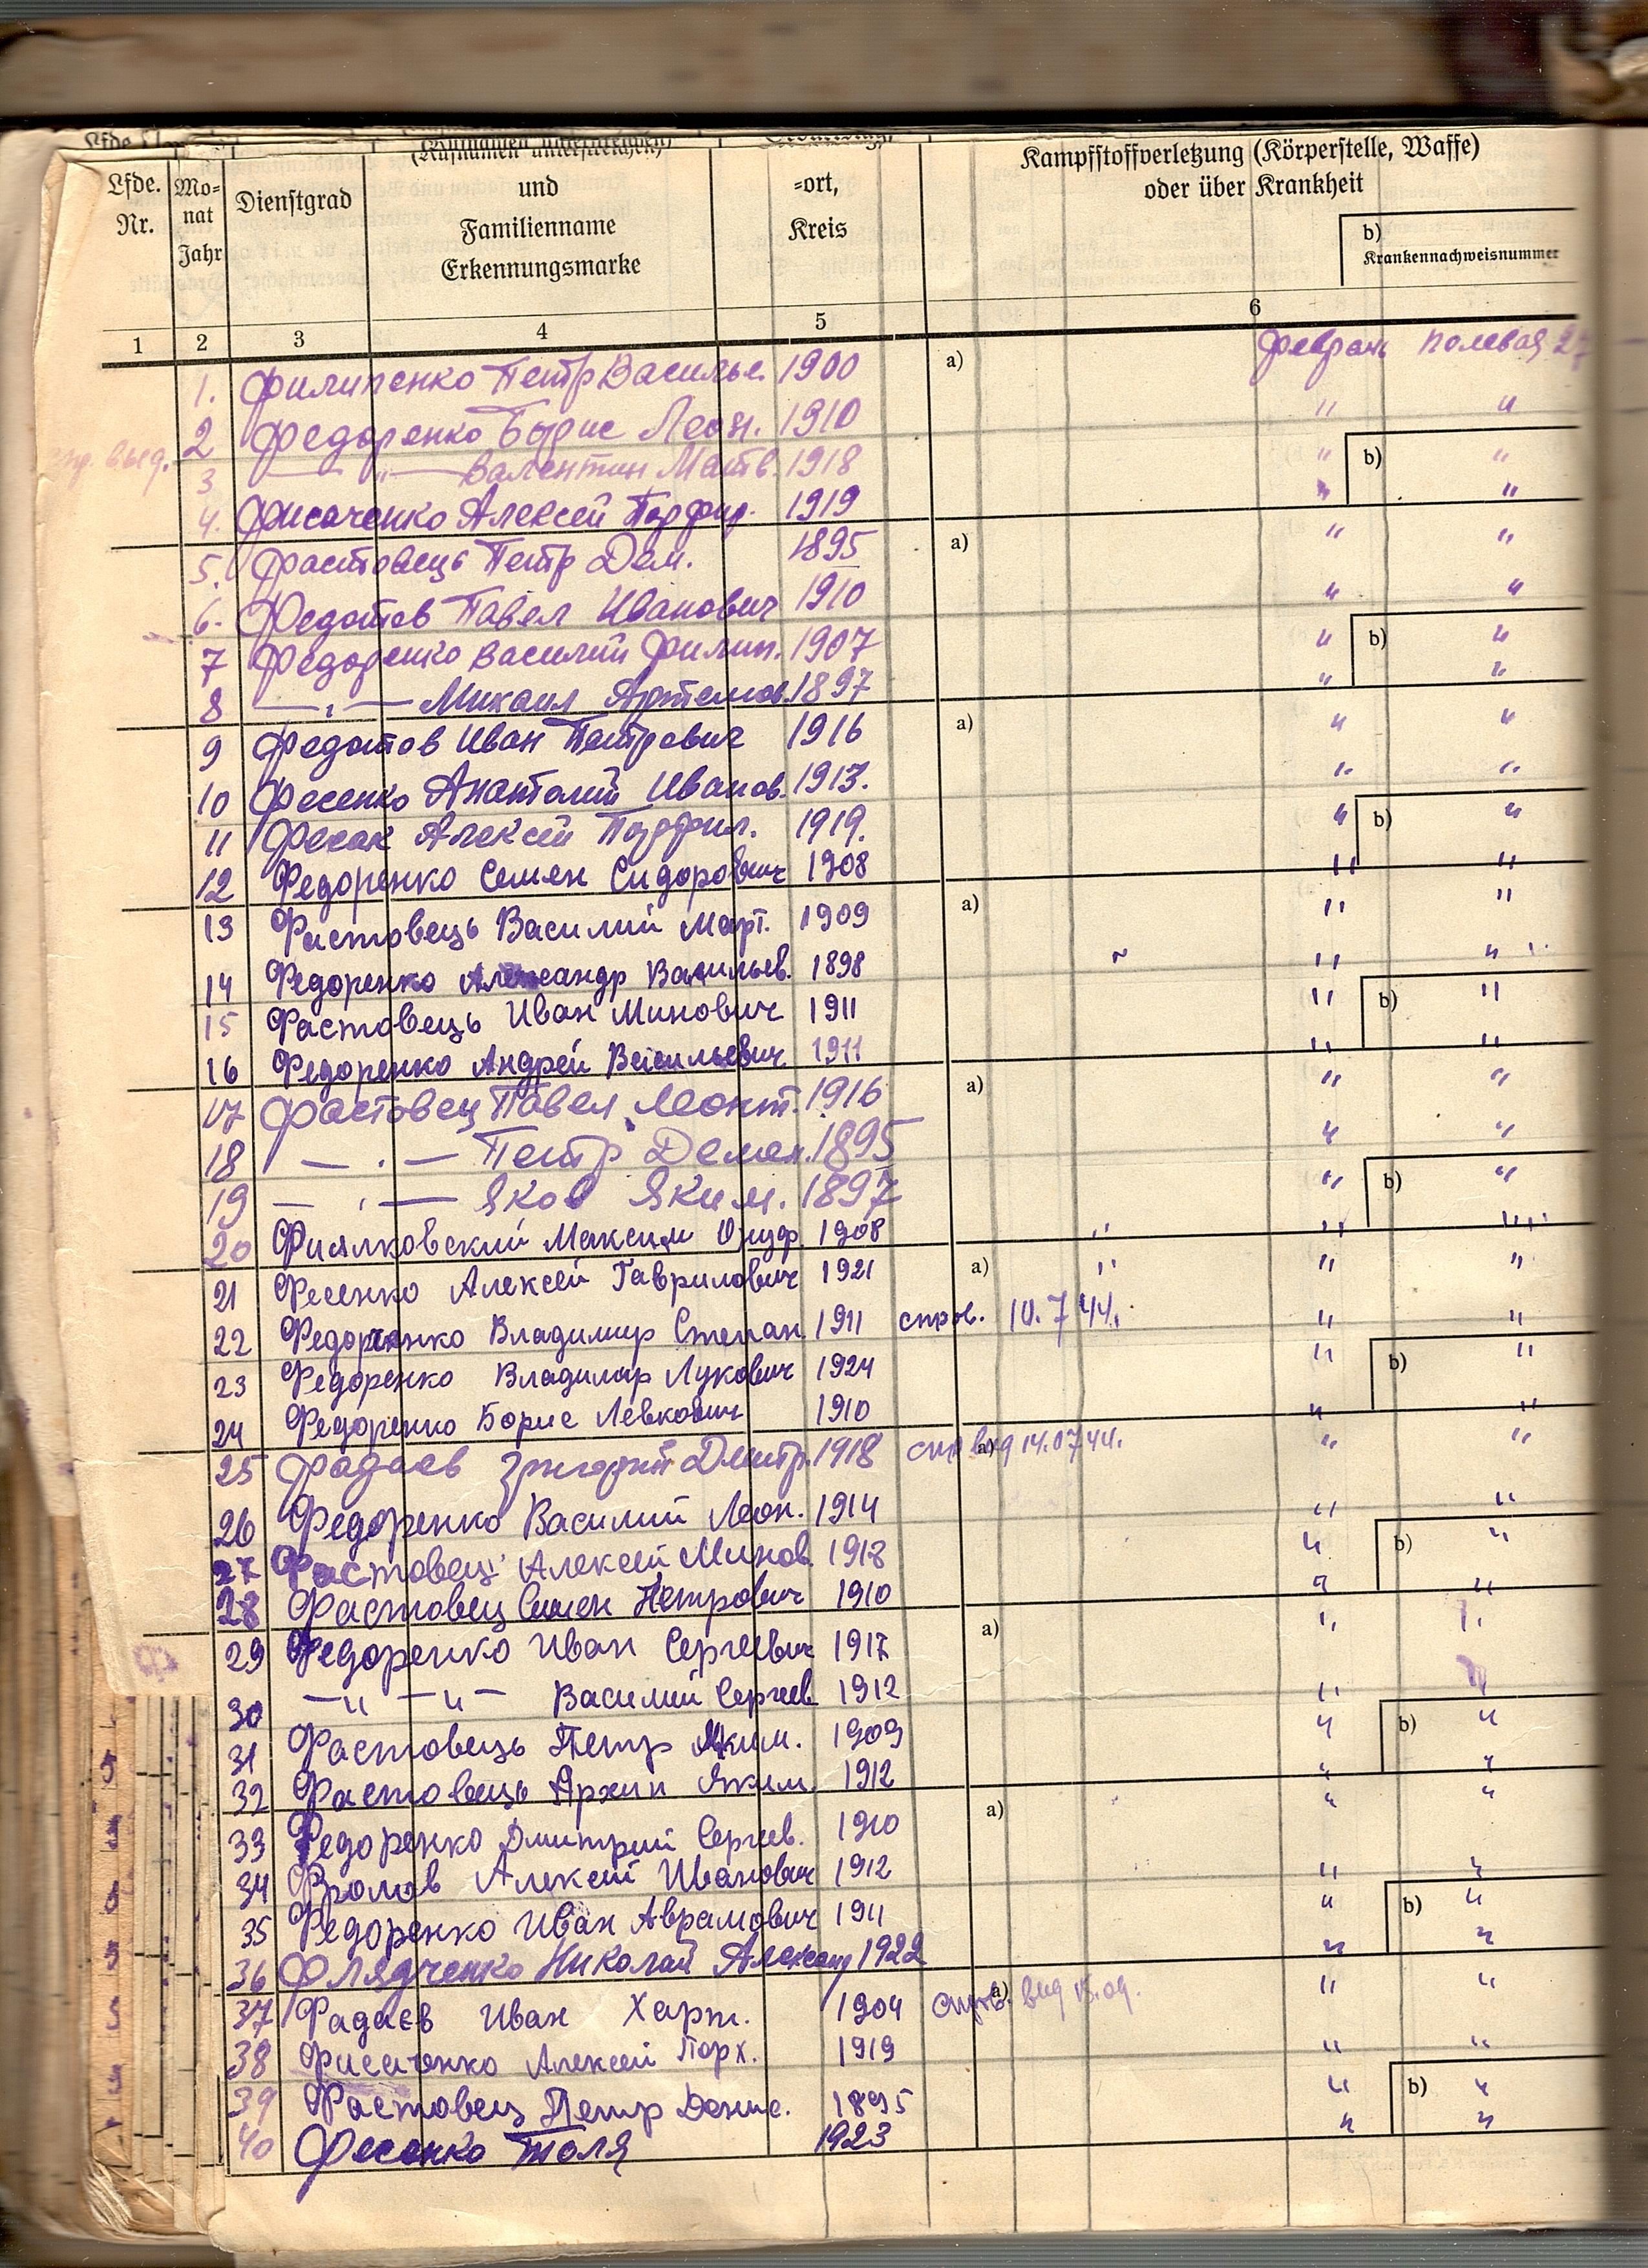 (Rufnamen unterstreichen)
Lfde. Nr.
Monat Jahr
Dienstgrad
und
Familienname
Erkennungsmarke
=ort,
Kreis
Kampfstoffverletzung (Körperstelle, Waffe)
oder über Krankheit
b)
Krankennachweisnummer
1 2 3 4 5 6
1. Филипенко Петр Василье. 1900 a) полевая
2 Федоренко Борис Леон. 1910 " "
3 — " — Валентин Матв. 1918 " b) "
4. Фисаченко Алексей Порфир. 1919 " "
5. Фастовець Петр Дем. 1895 a) " "
6. Федотов Павел Иванович 1910 " "
7 Федоренко Василий Филип. 1907 " b) "
8 — " — Михаил Артемов. 1897 " "
9 Федотов Иван Петрович 1916 a) " "
10 Фесенко Анатолий Иванов. 1913. " "
11 Фесак Алексей 1919. " b) "
12 Федоренко Семен Сидорович 1908 " "
13 Фастовець Василий Март. 1909 a) " "
14 Федоренко Александр Васильев. 1898 " "
15 Фастовець Иван Минович 1911 " b) "
16 Федоренко Андрей Васильевич 1911 " "
17 Фастовец Павел Леонт. 1916 a) " "
18 — " — Петр Демен. 1895 " "
19 — " — Яков Яким. 1897 " b) "
20 Фиялковский Максим Онуф. 1908 " " "
21 Фесенко Алексей Гаврилович 1921 a) " " "
22 Федоренко Владимир Степан. 1911 справ. 10.7 44. " "
23 Федоренко Владимир Лукович 1924 " b) "
24 Федоренко Борис Левкович 1910 " "
25 Фадаев Григорий Дмитр. 1918 a) 14.07 44. " "
26 Федоренко Василий Леон. 1914 " "
27 Фастовец Алексей Минов. 1918 " b) "
28 Фастовец Семен Петрович 1910 " "
29 Федоренко Иван Сергеевич 1917 a) " "
30 — " — " — Василий Сергеев. 1912 "
31 Фастовець Петр Яким. 1909 " b) "
32 Фастовець Архип Яким. 1912 " "
33 Федоренко Дмитрий Сергеев. 1910 a) " "
34 Фролов Алексей Иванович 1912 " "
35 Федоренко Иван Аврамович 1911 " b) "
36 Флядченко Николай Александ 1922 " "
37 Фадаєв Иван Харит. 1904 a) справ. вид " "
38 Фисаченко Алексей Порх. 1919 " "
39 Фастовец Петр Дение. 1895 " b) "
40 Фесенко Толя 1923 " "